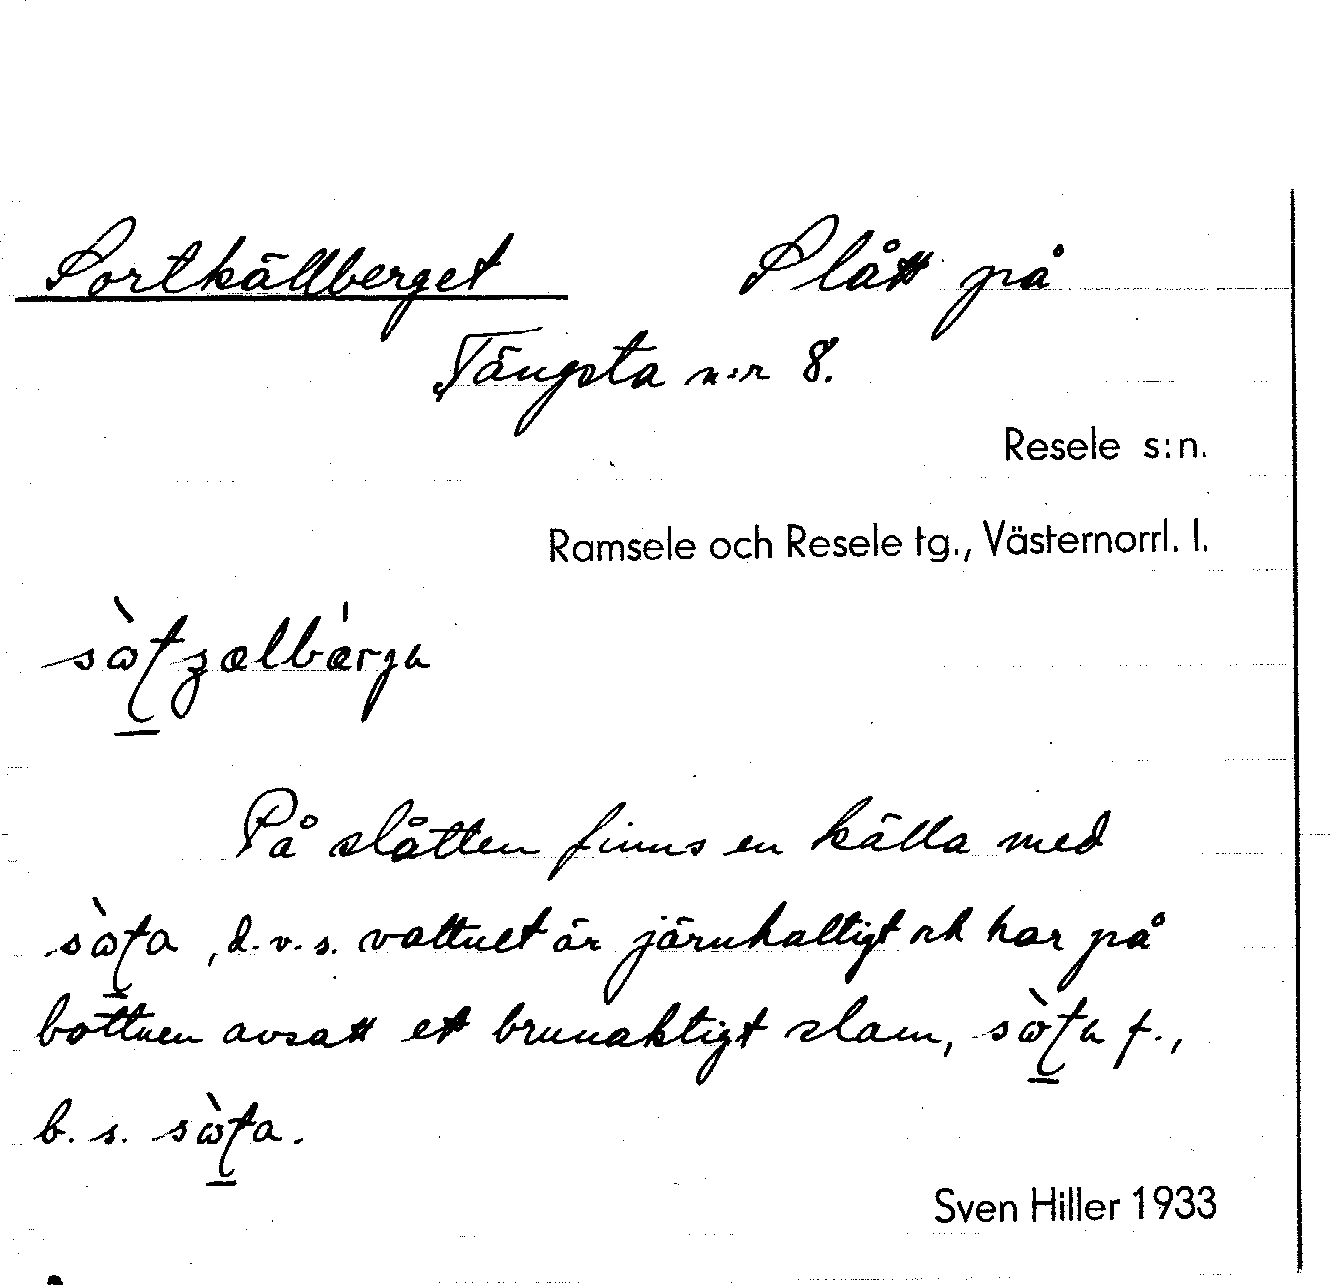 Sortkällberget Slått på
Tängsta n:r 8.
Resele s:n.
Ramsele och Resele tg., Västernorrl. l.
På slåtten finns en källa med
, d. v. s. vattnet är järnhaltigt och har på
bottnen avsatt ett brunaktigt slam, f.,
b. s.
Sven Hiller 1933